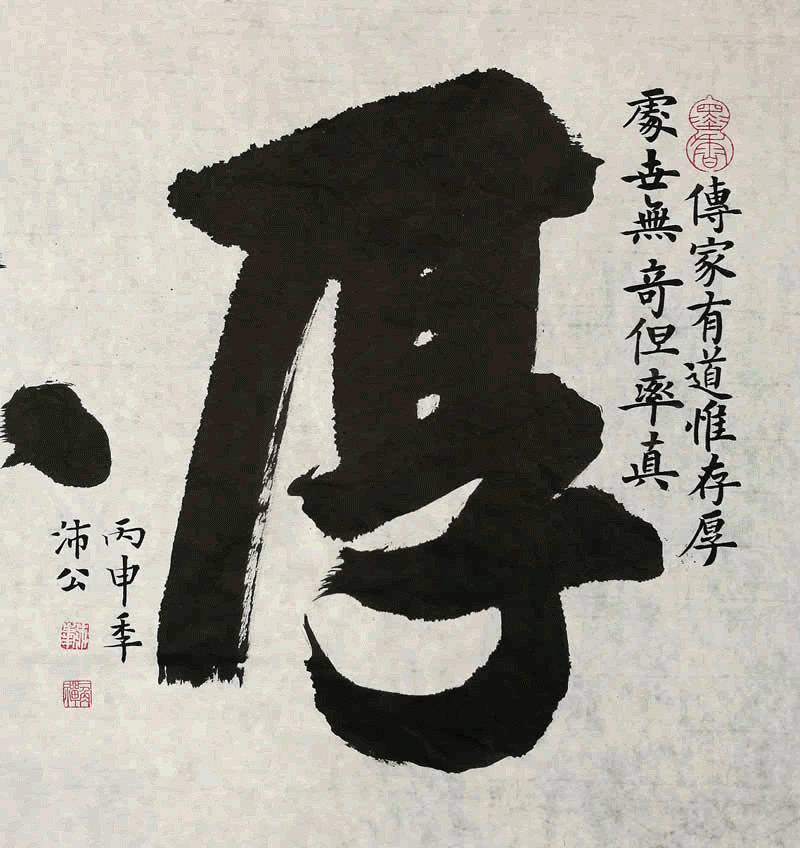 墨香
傳家有道惟存厚
處世無奇但率真
厚
丙申季
沛公